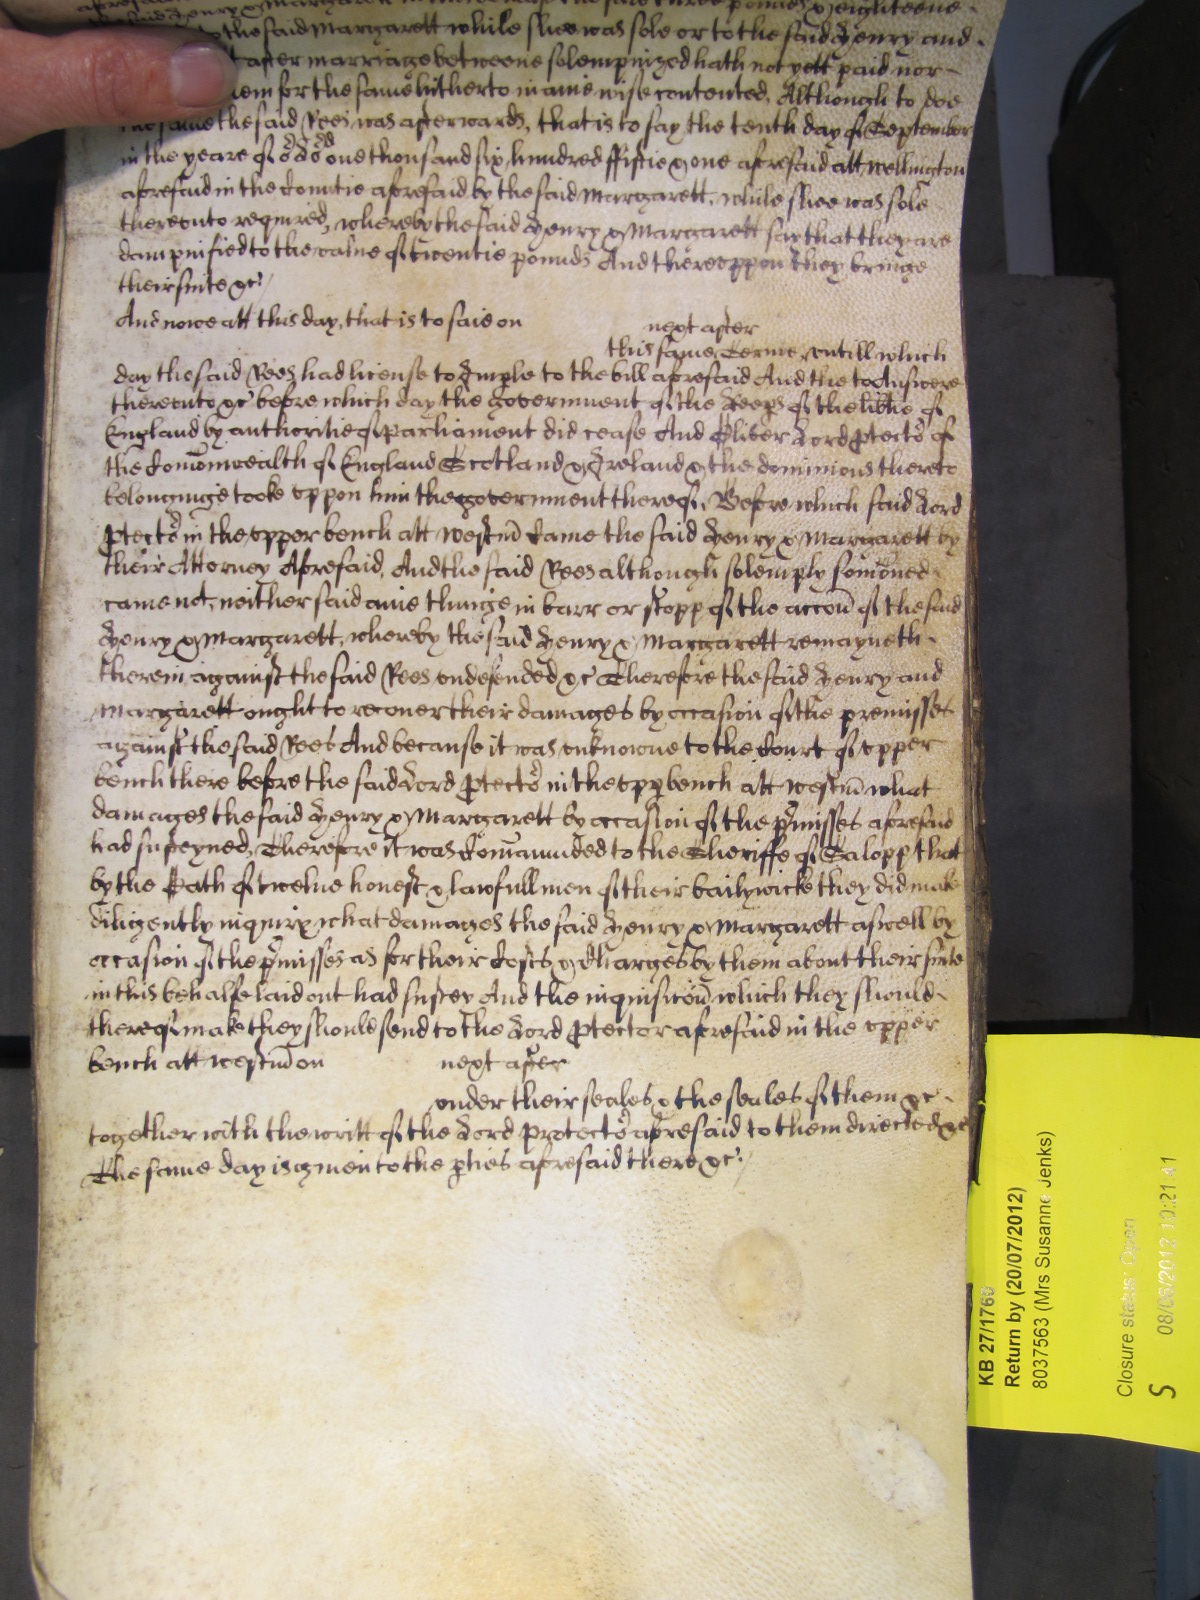 aforesaid Henry & Margarett the said three pounds & eighteene
to the said Margarett while shee was sole or to the said Henry and
after marriage betweene solempnized hath not yett paid nor
them for the same hitherto in anie wise contented, Although to doe
the same the said Rees was afterwards, that is to say the tenth day of September
in the yeare of or Lord one thousand six hundred ffiftie & one aforesaid att Wellington
aforesaid in the Countie aforesaid by the said Margarett, while shee was sole
thereunto required, whereby the said Henry & Margarett say that they are
dampnified to the value of twentie pounds And thereuppon they bringe
their suite &c
And nowe att this day, that is to saie on next after
this same Terme, untill which
day the said Rees had license to Imple to the bill aforesaid And the to Answere
thereunto &c before which day the government of the Keeps of the libtie of
England by authoritie of Parliament did cease And Oliver Lord Ptector of
the Comonwealth of England Scotland & Ireland & the dominions thereto
belonginge tooke uppon him the government thereof, Before which said Lord
Ptector in the upper bench att Westm Came the said Henry & Margarett by
their Attorney Aforesaid, And the said Rees although solemply somoned
came not, neither said anie thinge in barr or stopp of the accon of the said
Henry & Margarett, whereby the said Henry & Margarett remayneth
therein against the said Rees undefended &c Therefore the said Henry and
Margarett ought to recover their damages by occasion of the premisses
against the said Rees And because it was unknowne to the Court of upper
bench there before the said Lord Ptector in the upp bench att Westm what
damages the said Henry & Margarett by occasion of the pmisses aforesaid
had susteyned, Therefore it was Comaunded to the Sheriffe of Salopp that
by the Oath of twelve honest & lawfull men of their bailywicke they did make
diligently inquiry what damages the said Henry & Margarett aswell by
occasion of the pmisses as for their Costs & Charges by them about their suite
in this behalfe laid out had sustey And the inquisicon which they should
thereof make they should send to the Lord Ptector aforesaid in the upper
bench att Westm on next after
under their seales & the seales of them &c
together with the writt of the Lord Protector aforesaid to them directed &c
The same day is given to the pties aforesaid there &c
KB 27/1766
Return by (20/07/2012)
8037563 (Mrs Susanne Jenks)
Closure status: Open
08/06/2012 10:21:41
S